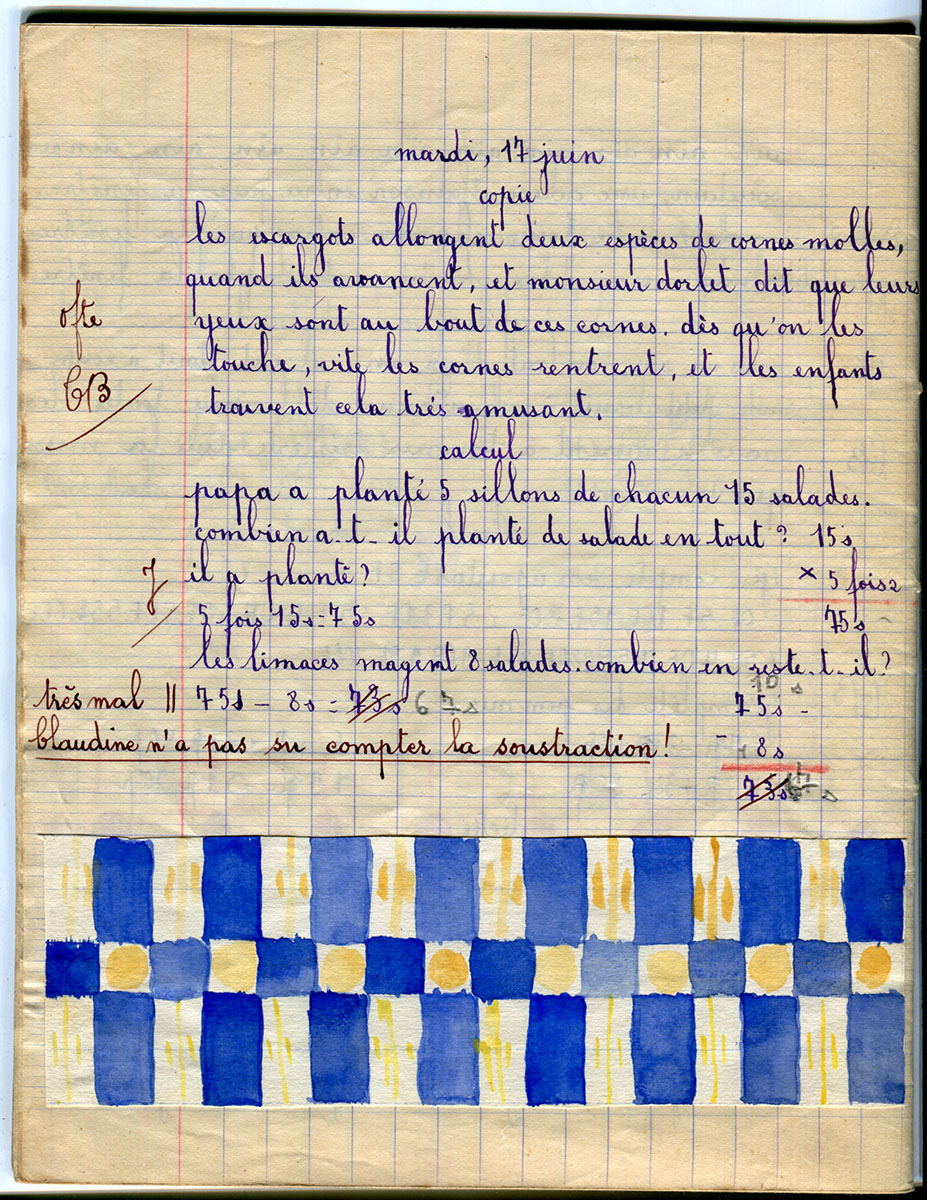 mardi, 17 juin
copie
les escargots allongent deux espèces de cornes molles,
quand ils avancent, et monsieur dorlet dit que leurs
yeux sont au bout de ces cornes. dès qu'on les
touche, vite les cornes rentrent, et les enfants
trouvent cela trés amusant.
TB
calcul
papa a planté 5 sillons de chacun 15 salades.
combien a-t-il planté de salade en tout? 15s
il a planté? × 5 fois
5 fois 15s = 75s 75s
les limaces magent 8 salades. combien en reste-t-il?
10
très mal || 75s - 8s = 73s 67s 75s -
- 8s
blaudine n'a pas su compter la soustraction!
73s 67s